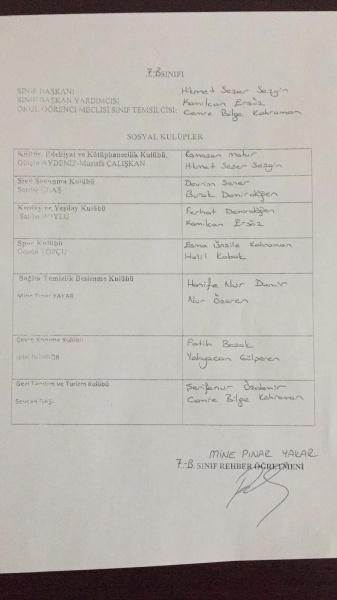 7-B SINIFI
SINIF BAŞKANI Hikmet Sezer Sezgin
SINIF BAŞKAN YARDIMCISI Kamilcan Ersöz
OKUL ÖĞRENCİ MECLİSİ SINIF TEMSİLCİSİ: Cemre Bilge Kahraman
SOSYAL KULÜPLER
Kültür, Edebiyat ve Kütüphanecilik Kulübü, Ramazan
AYDENİZ-Mustafa ÇALIŞKAN Hikmet Sezer Sezgin
Sivil Savunma Kulübü Devrim Saner
Burak Demirdöğen
Kızılay ve Yeşilay Kulübü Ferhat Demirdöğen
SOYLU Kamilcan Ersöz
Spor Kulübü Esma Kahraman
TOPÇU Halil Kabak
Sağlık Temizlik Beslenme Kulübü Hanife Nur Demir
Mine Pınar YAKAR Nur Özeren
Çevre Koruma Kulübü Fatih Başak
Yahyacan Gülperen
Gezi Tanıtım ve Turizm Kulübü Şerifenur Özdemir
Cemre Bilge Kahraman
MİNE PINAR YAKAR
7-B. SINIF REHBER ÖĞRETMENİ